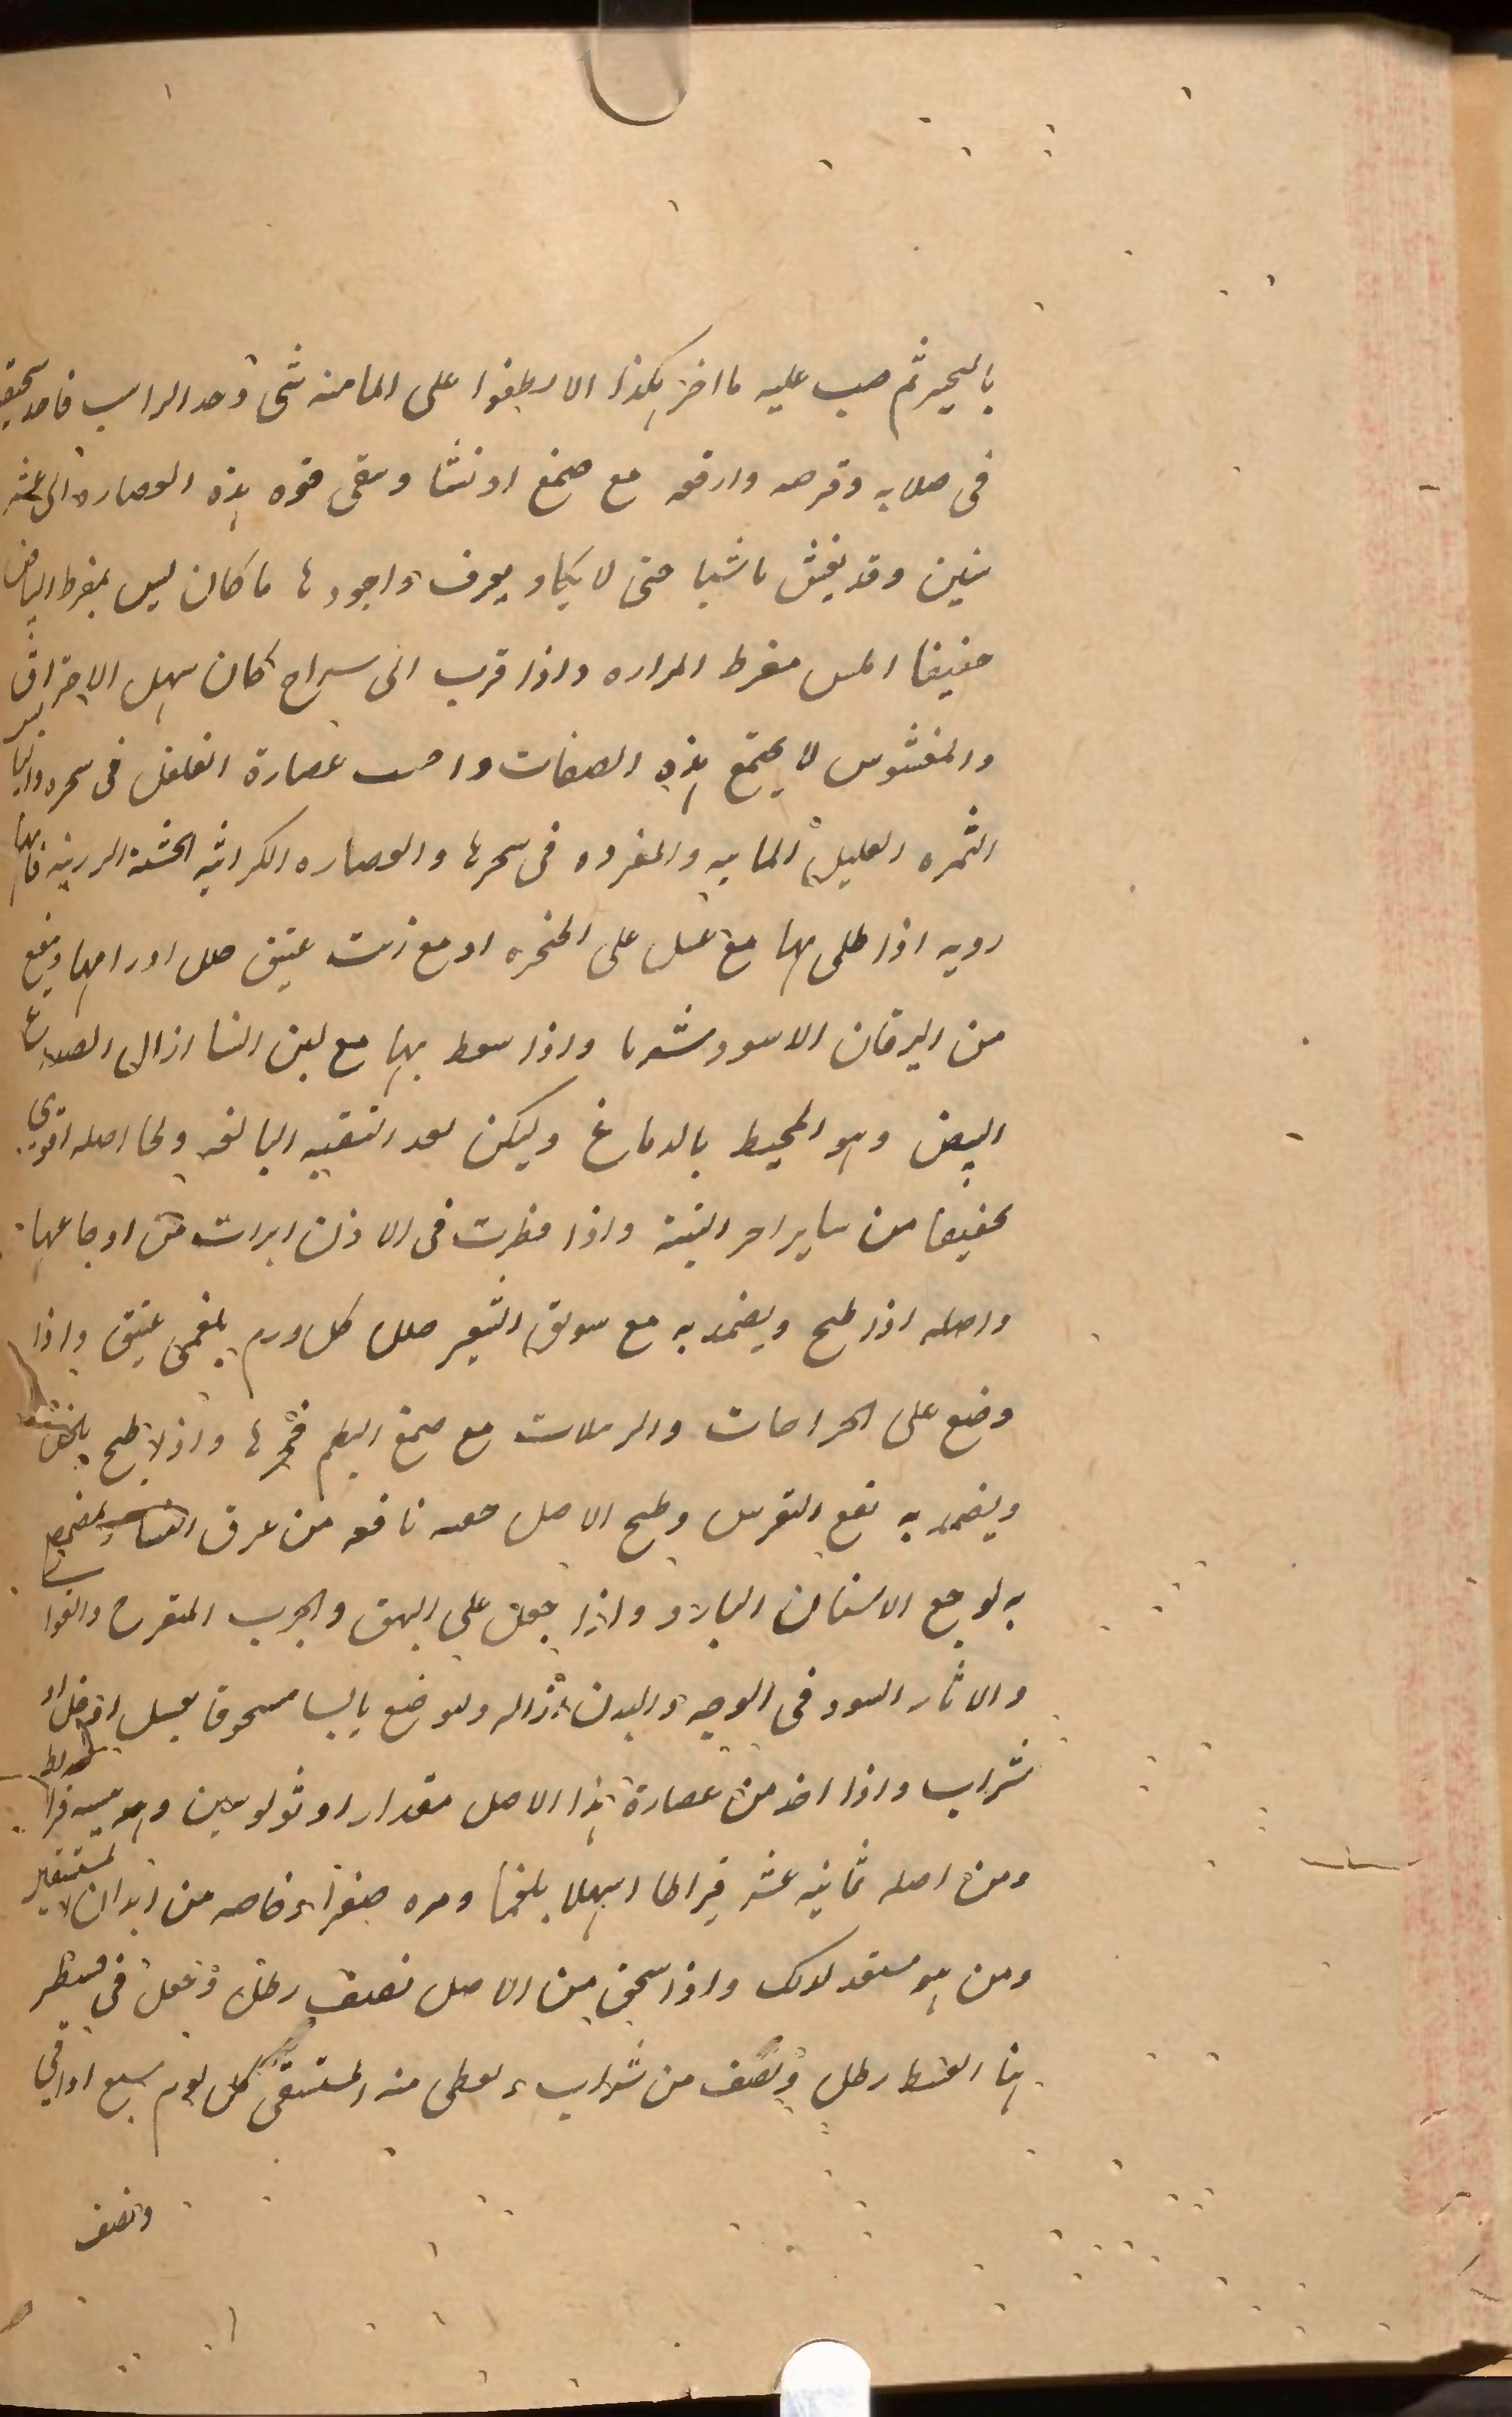 باليحير ثم صب عليه ما اخر هكذا الا يطفوا على الما منه شى وحد الراسب فاحد سحقه
فى صلابه وقرصه وارفعه مع صمغ او نشا وسقى قوه هذه العصاره الى عشر
سنين وقد يغش باشيا حتى لا يكاد يعرف واجودها ما كان ليس بمفرط البياض
خفيفا املس مفرط المراره واذا قرب الى سراج كان سهل الاحتراق
والمغشوش لا يجتمع هذه الصفات عصارة الفلفل فى
الثمره القليل المائيه والمفروه فى سحرها والعصاره الكراثيه الخشنة الرزينه فانها
رديه اذا طلى بها مع عسل على الحنجره او مع زيت عتيق حلل اورامها ونفع
من اليرقان الاسود شربا واذا سعط بها مع لبن النسا ازال الصداع
البيض وهو المحيط بالدماغ وليكن بعد التنقيه البالغه ولحا اصله اقوى
تجفيفا من ساير اجزا النبتة واذا قطرت فى الاذن ابرات من اوجاعها
واصله اذا طبخ ويضمد به مع سويق الشعير حلل كل ورم بلغمى عتيق واذا
وضع على الجراحات والدبيلات مع صمغ البطم فجرها واذا طبخ بالخل
ويضمد به نفع النقرس وطبخ الاصل حقنه نافعه من عرق النسا ويتمضمض
به لوجع الاسنان البارد واذا جعل على البهق والجرب المتقرح والقوابى
والاثار السود فى الوجه والبدن ازاله ولو وضع يابسا مسحوقا بعسل او خل او
شراب واذا اخذ من عصارة هذا الاصل مقدار اوثولوسين وهو تسعه قراريط
ومن اصله ثمانيه عشر قيراطا اسهلا بلغما ومره صفراء خاصه من ابدان المستسقين
ومن هو مستعد لذلك واذا سحق من الاصل نصف رطل وجعل فى قسط
هنا القسط رطل ونصف من شراب ويعطى منه المستسقى كل يوم سبع اواقى
ونصف